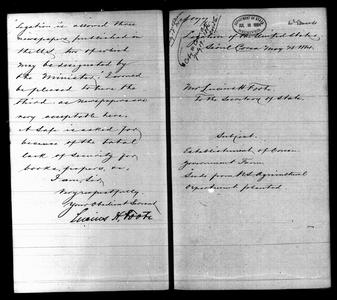 Legation is allowed three
newspapers published in
the U.S., two of which
may be designated by
the Minister. I would
be pleased to have the
third as newspapers are
very acceptable here.
A safe is asked for
because of the total
lack of security for
books, papers, &c.
I am, Sir,
Very respectfully,
Your Obedient Servant
Lucius H. Foote
Legation of the United States,
Seoul Corea May 21 1884.
DEPARTMENT OF STATE
1884
Mr Lucius H. Foote
to the Secretary of State.
Subject.
Establishment of Corean
Government Farm
Seeds from U.S. Agricultural
Department planted